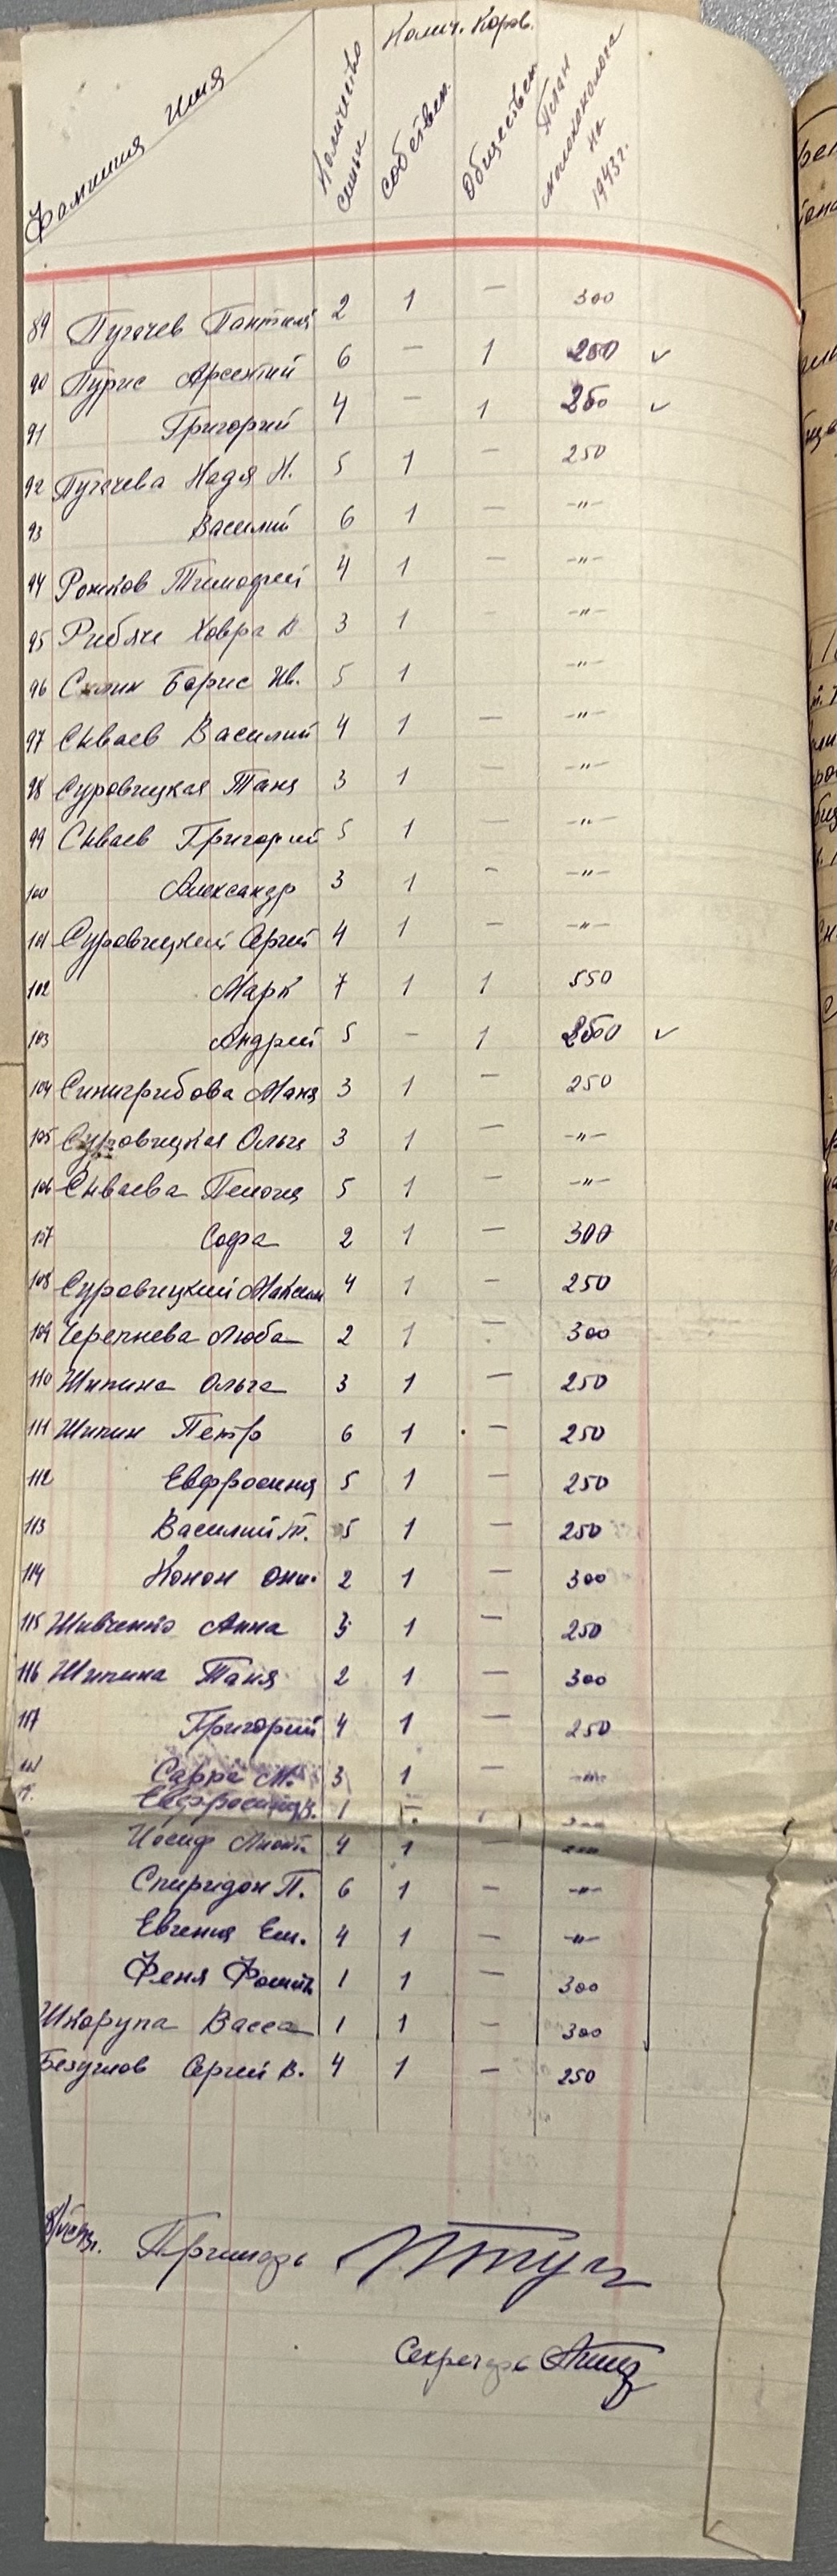 Фамилия Имя Количество семьи Колич. Коров. собствен. Обществен План на 1943 г.
89 Пугачев Пантилей 2 1 — 300
90 Пурис Арсентий 6 — 1 250 ✓
91 Григорий 4 — 1 250 ✓
92 Пугачева Надя Н. 5 1 — 250
93 Василий 6 1 — -"-
94 Рожков Тимофей 4 1 — -"-
95 3 1 — -"-
96 Борис Ив. 5 1 -"-
97 Скваев Василий 4 1 — -"-
98 Суровицкая Таня 3 1 — -"-
99 Скваев Григорий 5 1 — -"-
100 Александр 3 1 - -"-
101 Суровицкий Сергей 4 1 — -"-
102 Марк 7 1 1 550
103 Андрей 5 — 1 ✓
104 Синигрибова Маня 3 1 — 250
105 Суровицкая Ольга 3 1 — -"-
106 Скваева Пелогия 5 1 — -"-
107 Софа 2 1 — 300
108 Суровицкий Максим 4 1 - 250
109 Черепнева Люба 2 1 — 300
110 Шипина Ольга 3 1 — 250
111 Шипин Петр 6 1 — 250
112 Евфросиния 5 1 — 250
113 Василий Т. 5 1 — 250
114 Конон 2 1 — 300
115 Шивченко Анна 3 1 — 250
116 Шипина Таня 2 1 — 300
117 Григорий 4 1 — 250
Сарра М. 3 1 — -"-
1
Иосиф 4 1 —
Спиридон П. 6 1 — -"-
Евгения Ем. 4 1 — -"-
Феня 1 1 — 300
Шкорупа Васса 1 1 - 300
Безумов Сергей В. 4 1 — 250
Примарь
Секретарь